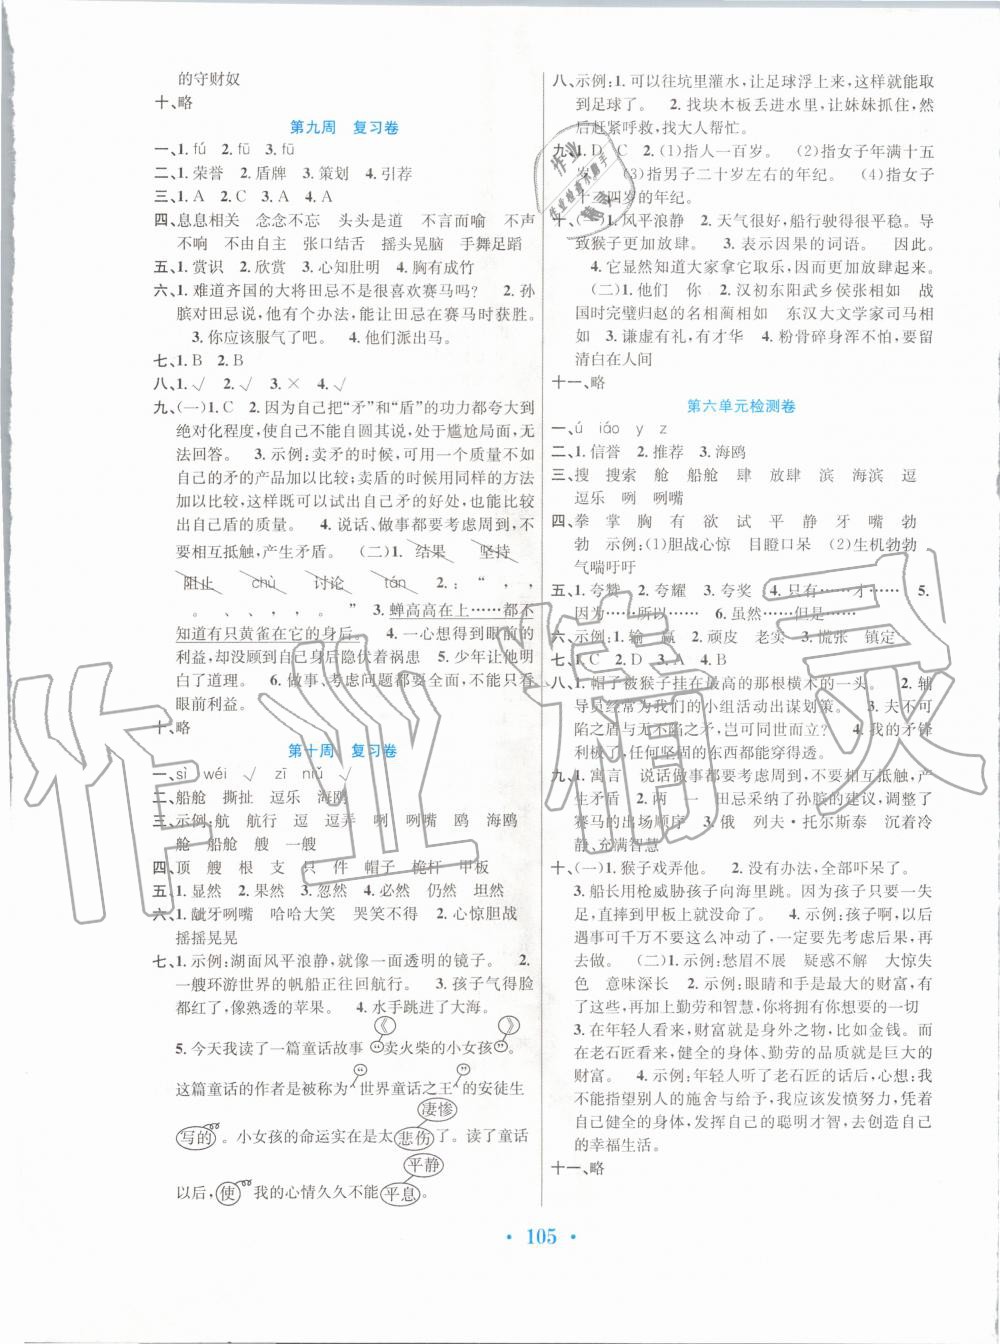 的守财奴
十、略
第九周 复习卷
一、1. fú 2. fū 3. fū
二、1. 荣誉 2. 盾牌 3. 策划 4. 引荐
三、1. A 2. C 3. A 4. C
四、息息相关 念念不忘 头头是道 不言而喻 不声
不响 不由自主 张口结舌 摇头晃脑 手舞足蹈
五、1. 赏识 2. 欣赏 3. 心知肚明 4. 胸有成竹
六、1. 难道齐国的大将田忌不是很喜欢赛马吗? 2. 孙
膑对田忌说,他有个办法,能让田忌在赛马时获胜。
3. 你应该服气了吧。 4. 他们派出马。
七、1. B 2. B
八、1. √ 2. √ 3. × 4. √
九、(一)1. C 2. 因为自己把“矛”和“盾”的功力都夸大到
绝对化程度,使自己不能自圆其说,处于尴尬局面,无
法回答。 3. 示例:卖矛的时候,可用一个质量不同于
自己的矛的产品加以比较;卖盾的时候用同样的方法
加以比较,这样既可以试出自己矛的好处,也可以试出
自己盾的质量。 4. 说话、做事都要考虑周到,不
要相互抵触,产生矛盾。 (二)1. 结果 坚持
阻止 chù 讨论 tán 2. : “ , ,
。 、 、 , 。 ” 3. 蝉高高在上……都不
知道有只黄雀在它的身后。 4. 一心想得到眼前的
利益,却没顾到自己身后隐伏着祸患 5. 少年让吴王明
白了道理。 6. 做事、考虑问题都要全面,不能只看
眼前利益。
十、略
第十周 复习卷
一、sì wéi √ zī niǔ √
二、船舱 撕扯 逗乐 海鸥
三、示例:航 航行 逗 逗弄 咧 咧嘴 鸥 海鸥
舱 船舱 艘 一艘
四、顶 艘 根 支 只 件 帽子 桅杆 甲板
五、1. 显然 2. 果然 3. 忽然 4. 必然 仍然 坦然
六、1. 龇牙咧嘴 哈哈大笑 哭笑不得 2. 心惊胆战
摇摇晃晃
七、1. 示例:湖面风平浪静,就像一面透明的镜子。 2.
一艘环游世界的帆船正往回航行。 3. 孩子气得脸
都红了,像熟透的苹果。 4. 水手跳进了大海。
《 》
5. 今天我读了一篇童话故事“卖火柴的小女孩”。
这篇童话的作者是被称为“世界童话之王”的安徒生
凄惨
写的。小女孩的命运实在是太悲伤了。读了童话
平静
以后,使我的心情久久不能平息。
八、示例:1. 可以往坑里灌水,让足球浮上来,这样就能取
到足球了。 2. 找块木板丢进水里,让妹妹抓住,然
后赶紧呼救,找大人帮忙。
九、1. D C 2. (1)指人一百岁。 (2)指女子年满十五
岁。 (3)指男子二十岁左右的年纪。 (4)指女子
十三四岁的年纪。
十、(一)1. 风平浪静 2. 天气很好,船行驶得很平稳。导
致猴子更加放肆。 3. 表示因果的词语。 因此。
4. 它显然知道大家拿它取乐,因而放肆起来。
(二)1. 他们 你 2. 汉初东阳武乡侯张相如 战
国时完璧归赵的名相蔺相如 东汉大文学家司马相
如 3. 谦虚有礼,有才华 4. 粉骨碎身浑不怕,要留
清白在人间
十一、略
第六单元检测卷
一、ú iáo y z
二、1. 信誉 2. 推荐 3. 海鸥
三、搜 搜索 舱 船舱 肆 放肆 滨 海滨 逗
逗乐 咧 咧嘴
四、拳 掌 胸 有 欲 试 平 静 牙 嘴 勃
勃 示例:(1)胆战心惊 目瞪口呆 (2)生机勃勃
气喘吁吁
五、1. 夸赞 2. 夸耀 3. 夸奖 4. 只有……才…… 5.
因为……所以…… 6. 虽然……但是……
六、示例:1. 输 赢 2. 顽皮 老实 3. 慌张 镇定
七、1. C 2. D 3. A 4. B
八、1. 帽子被猴子挂在最高的那根横木的一头。 2. 辅
导员经常为我们的小组活动出谋划策。 3. 夫不可
陷之盾与无不陷之矛,岂可同世而立? 4. 我的矛锋
利极了,任何坚固的东西都能穿得透。
九、1. 寓言 说话做事都要考虑周到,不要相互抵触,产
生矛盾 2. 两 一 田忌采纳了孙膑的建议,调整了
赛马的出场顺序 3. 俄 列夫·托尔斯泰 沉着冷
静,充满智慧
十、(一)1. 猴子戏弄他。 2. 没有办法,全部吓呆了。
3. 船长用枪威胁孩子向海里跳。因为孩子只要一失
足,直摔到甲板上就没命了。 4. 示例:孩子啊,以后
遇事可千万不要这么冲动了,一定要先考虑后果,再
去做。 (二)1. 示例:愁眉不展 疑惑不解 大惊失
色 意味深长 2. 示例:眼睛和手是最大的财富,有
了这些,再加上勤劳和智慧,你将拥有你想要的一切
3. 在年轻人看来,财富就是身外之物,比如金钱。而
在老石匠看来,健全的身体、勤劳的品质就是巨大的
财富。 4. 示例:年轻人听了老石匠的话后,心想:我
不能指望别人的施舍与给予,我应该发愤努力,凭借
自己健全的身体,发挥自己的聪明才智,去创造自己
的幸福生活。
十一、略
· 105 ·
作业精灵